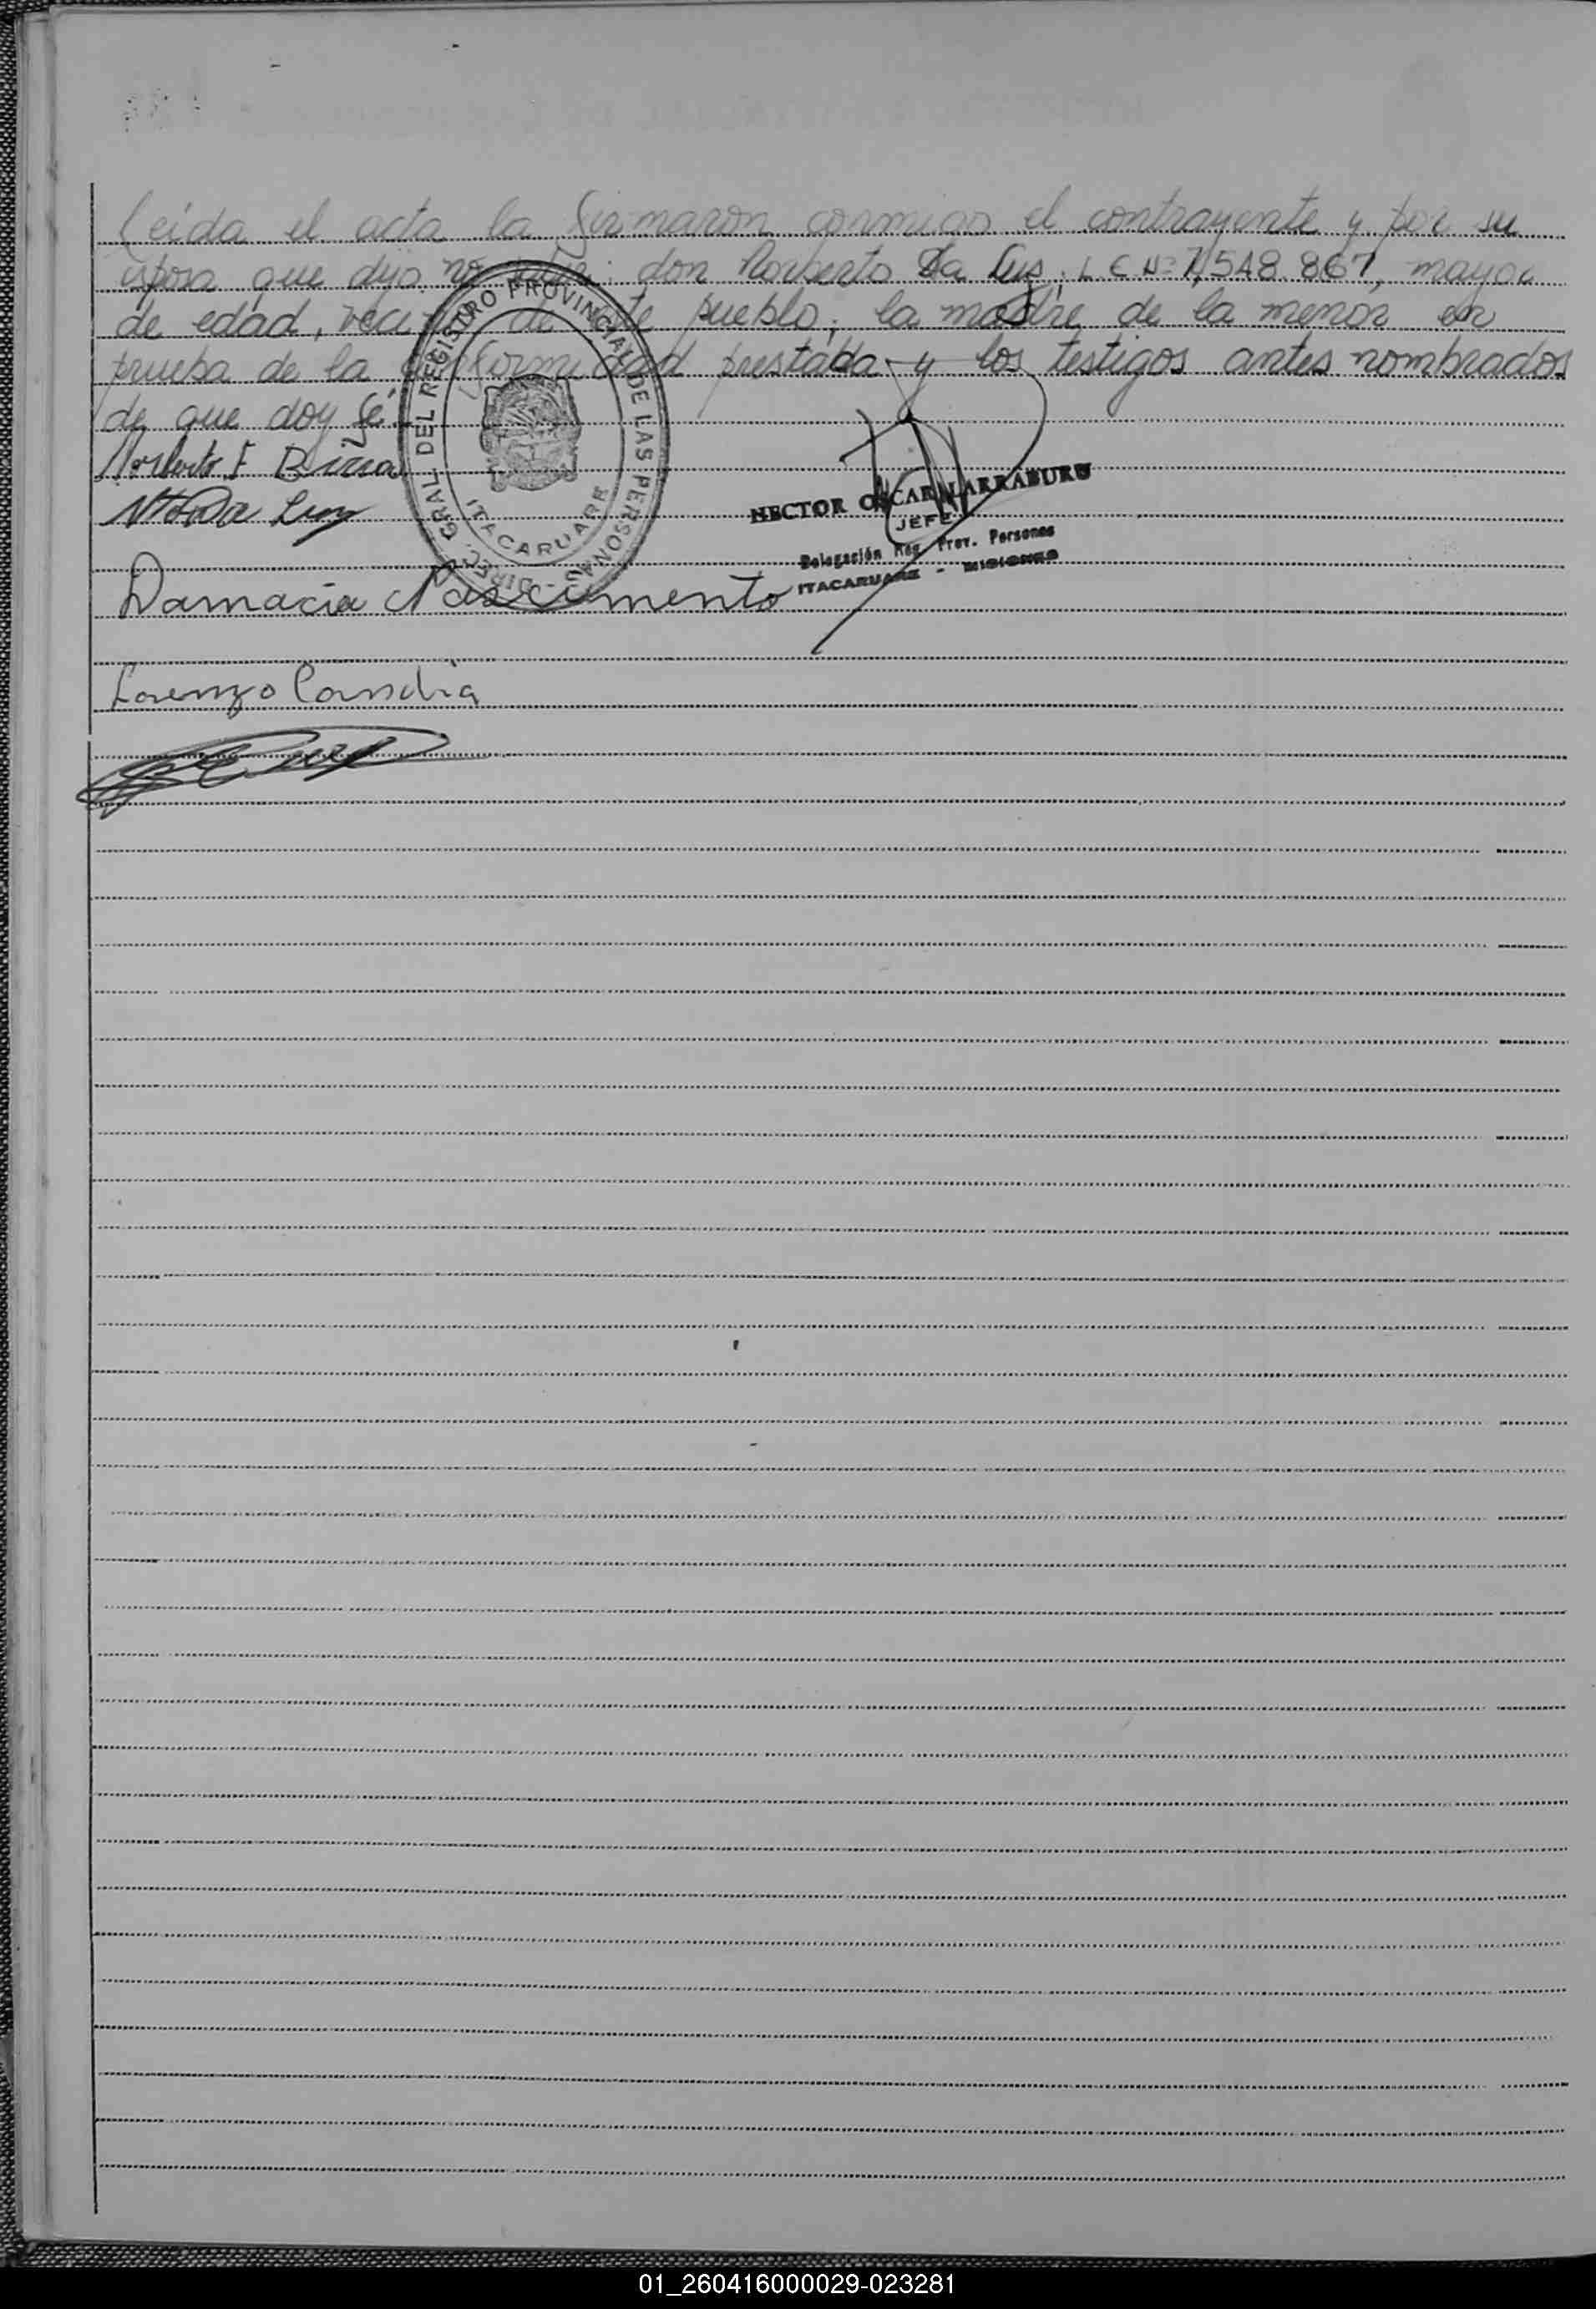 Leida el acta la firmaron conmigo el contrayente y por su
esposa que dijo no don Norberto Da Luz, L E Nº 7,548.867, mayor
de edad, vecino de este pueblo; la madre de la menor en
prueba de la conformidad prestada y los testigos antes nombrados
de que doy fé.
DIREC. GRAL. DEL REGISTRO PROVINCIAL DE LAS PERSONAS
ITACARUARE
Norberto F
N Da Luz
HECTOR OSCAR LARRABURU
JEFE
Delegación Reg. Prov. Personas
ITACARUARE - MISIONES
Damacia Nascimento
Lorenzo Candia
01_260416000029-023281